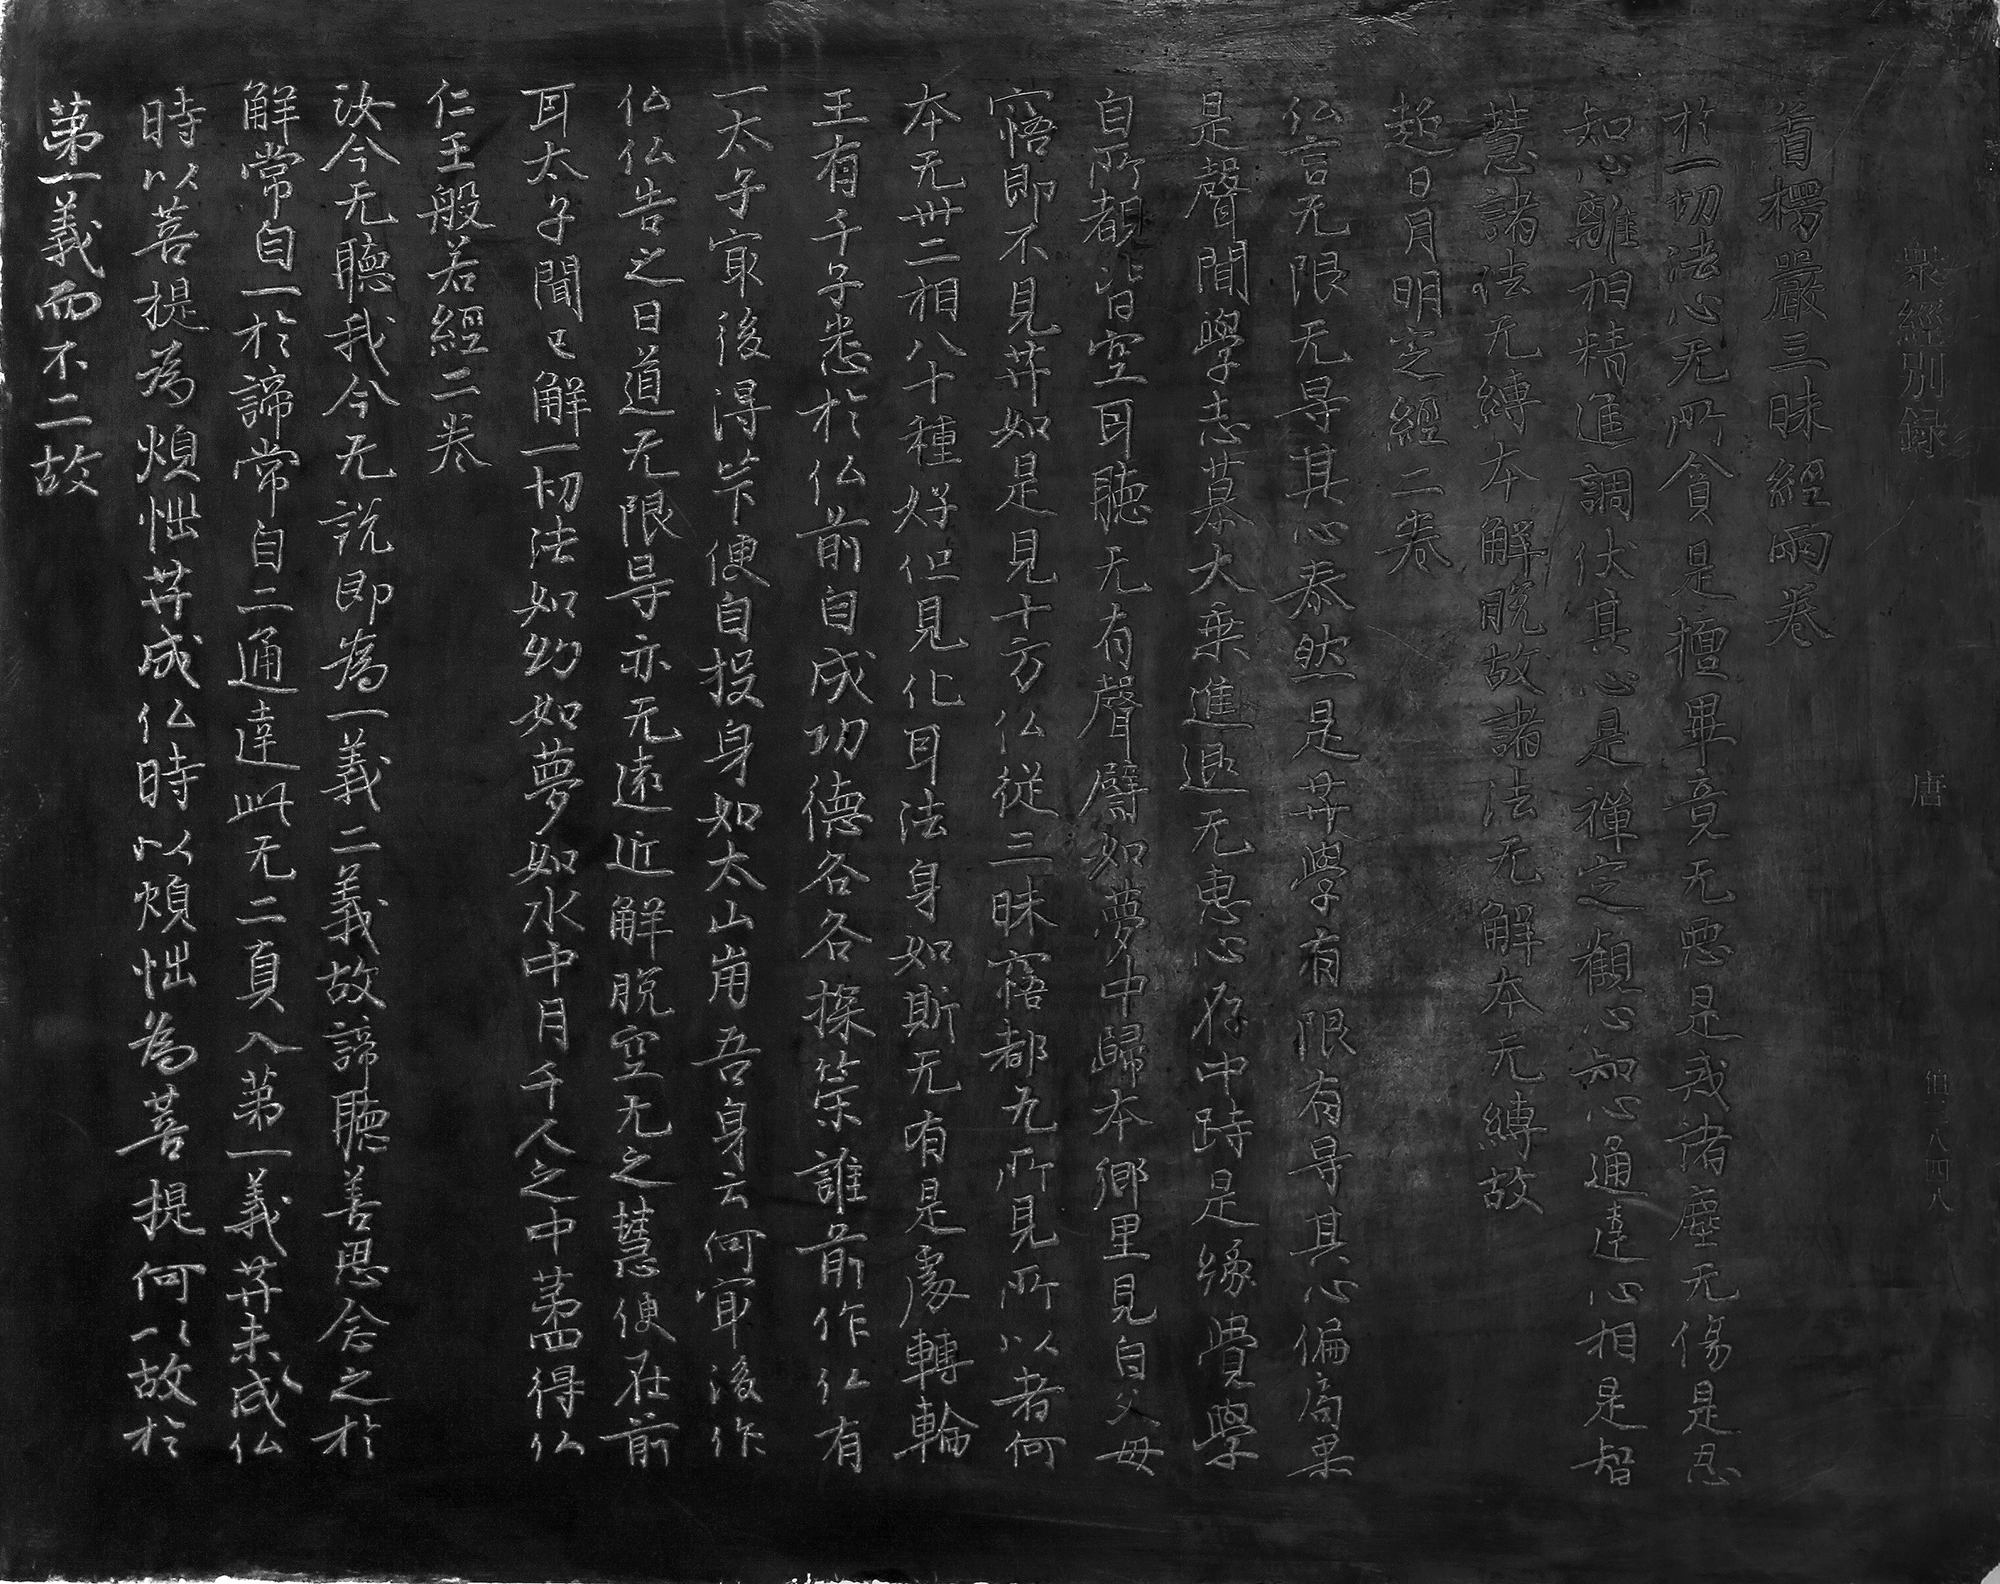 衆經別録 唐 伯三八四八
首楞嚴三昧經兩卷
於一切法心无所貪是檀畢竟无惡是戒諸塵无傷是忍
知心離相精進調伏其心是禪定觀心知心通達心相是智
慧諸法无縛本解脫故諸法无解本无縛故
超日月明定經二卷
仏言无限无㝵其心泰然是菩薩學有限有㝵其心偏局果
是聲聞學志慕大乗進退无惠心存中跱是緣覺學
自所覩皆空耳聽无有聲辟如夢中歸本鄉里見自父母
寤即不見菩薩如是見十方仏從三昧寤都无所見所以者何
本无卅二相八十種好但見化耳法身如斯无有是處轉輪
王有千子悉於仏前自成功德各各探䇿誰前作仏有
一太子㝡後得䇿便自投身如太山崩吾身云何㝡後作
仏仏告之曰道无限㝵亦无遠近解脫空无之慧便在前
耳太子聞已解一切法如幻如夢如水中月千人之中苐四得仏
仁王般若經二卷
汝今无聽我今无說即為一義二義故諦聽善思念之於
解常自一於諦常自二通達此无二真入苐一義菩薩未成仏
時以菩提為煩惱菩薩成仏時以煩惱為菩提何以故於
苐一義而不二故